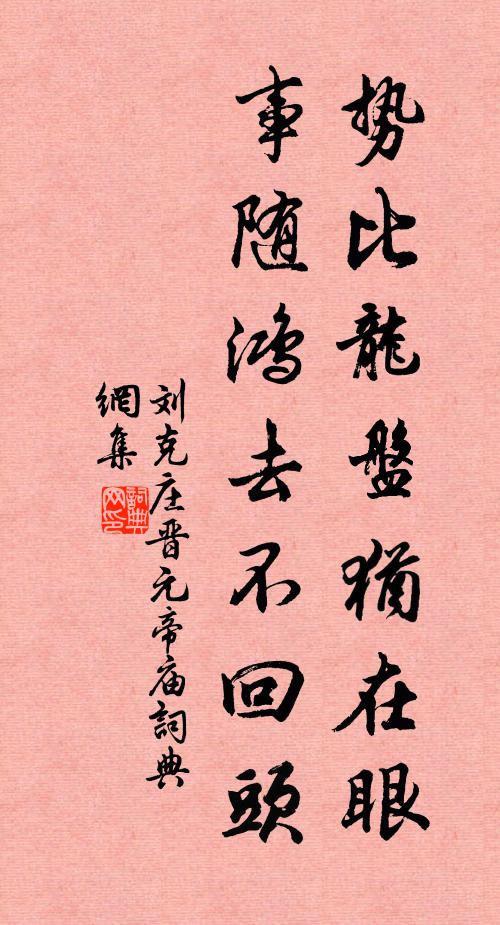 势比龍盤猶在眼
事随鴻去不回頭
刘克庄晋元帝庙詞典
網集
詞典
网印